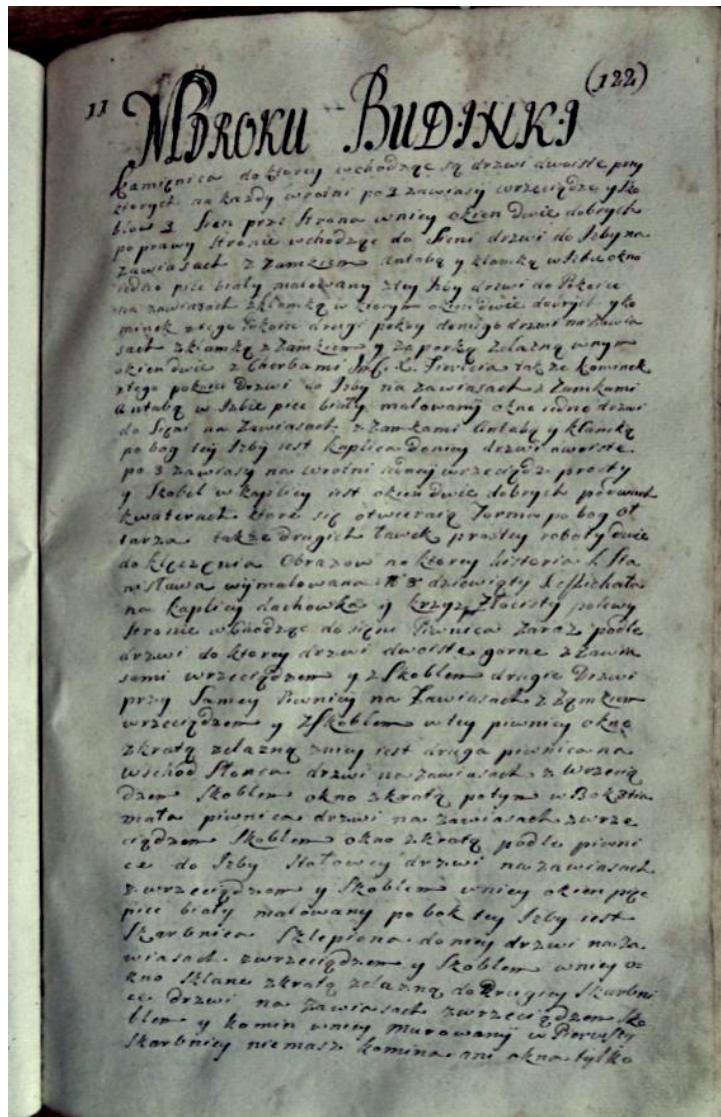 11 MBROKU BUDINKI (122)
Kamięnica do ktorey wchodząc są drzwi dwoiste przy
ktorych na każdy wrotni po 3 zawiasy wrzeciądze y sko
blow 3 Sien prze strona w nicy okien dwie dobrych
po prawy stronie wchodząc do Sieni drzwi do Izby na
zawiasach z zamkiem antabą y klamką w Izbie okno
iedno piec biały malowany z tey Izby drzwi do Pokoiu
na zawiasach z klamką w ktorym okien dwie dobrych y ko
minek z tego Pokoiu drugi pokoy do niego drzwi na zawia
sach z klamką z zamkiem y zaporką zelazną w nym
okien dwie z Cherbami także kominek
z tego pokoiu Drzwi do Izby na zawiasach z zamkami
antabą w Izbie piec biały malowany okno iedno drzwi
do Sięni na zawiasach z zamkami antabą y klamką
po bog tey Izby iest kaplica do nicy drzwi dwoiste
po 3 zawiasy na wrotni iedney wrzeciądz prosty
y Skobel w kaplicy iest okien dwie dobrych
kwaterach ktore się otwieraią po bog ot
tarza także drugich ławek prostey roboty dwie
do klęczęnia Obrazow na ktorey historia S. Sta
nisława wymalowana dziewięty S. Michała
na kaplicy dachowka y krzyz Złocisty po lewy
stronie wchodząc do sięni Piwnica zaraz podle
drzwi do ktorey drzwi dwoiste gorne z zawia
sami wrzeciądzem y z Skoblem drugie Drzwi
przy Samey Piwnicy na Zawiasach z Zamkiem
wrzeciądzem y z Skoblem w tey piwnicy okno
z kratą zelazną z nicy iest druga piwnica na
wschod Słonca drzwi na zawiasach z Wrzecią
dzem Skoblem okno z kratą potym w Bok
mała piwnica drzwi na zawiasach z wrze
ciądzem Skoblem okno z kratą podle piwni
ce do Izby Stołowey drzwi na zawiasach
z wrzeciądzem y Skoblem w nicy okien pięc
piec biały malowany po bok tey Izby iest
Skarbnica Szlepiona do nicy drzwi na za
wiasach z wrzeciądzem y Skoblem w nicy o=
kno sklane z kratą zelazną do Drugiey Skarbni
ce drzwi na zawiasach z wrzeciądzem sko
blem y komin w nicy murowany w Pierwszy
Skarbnicy niemasz komina ani okna tylko